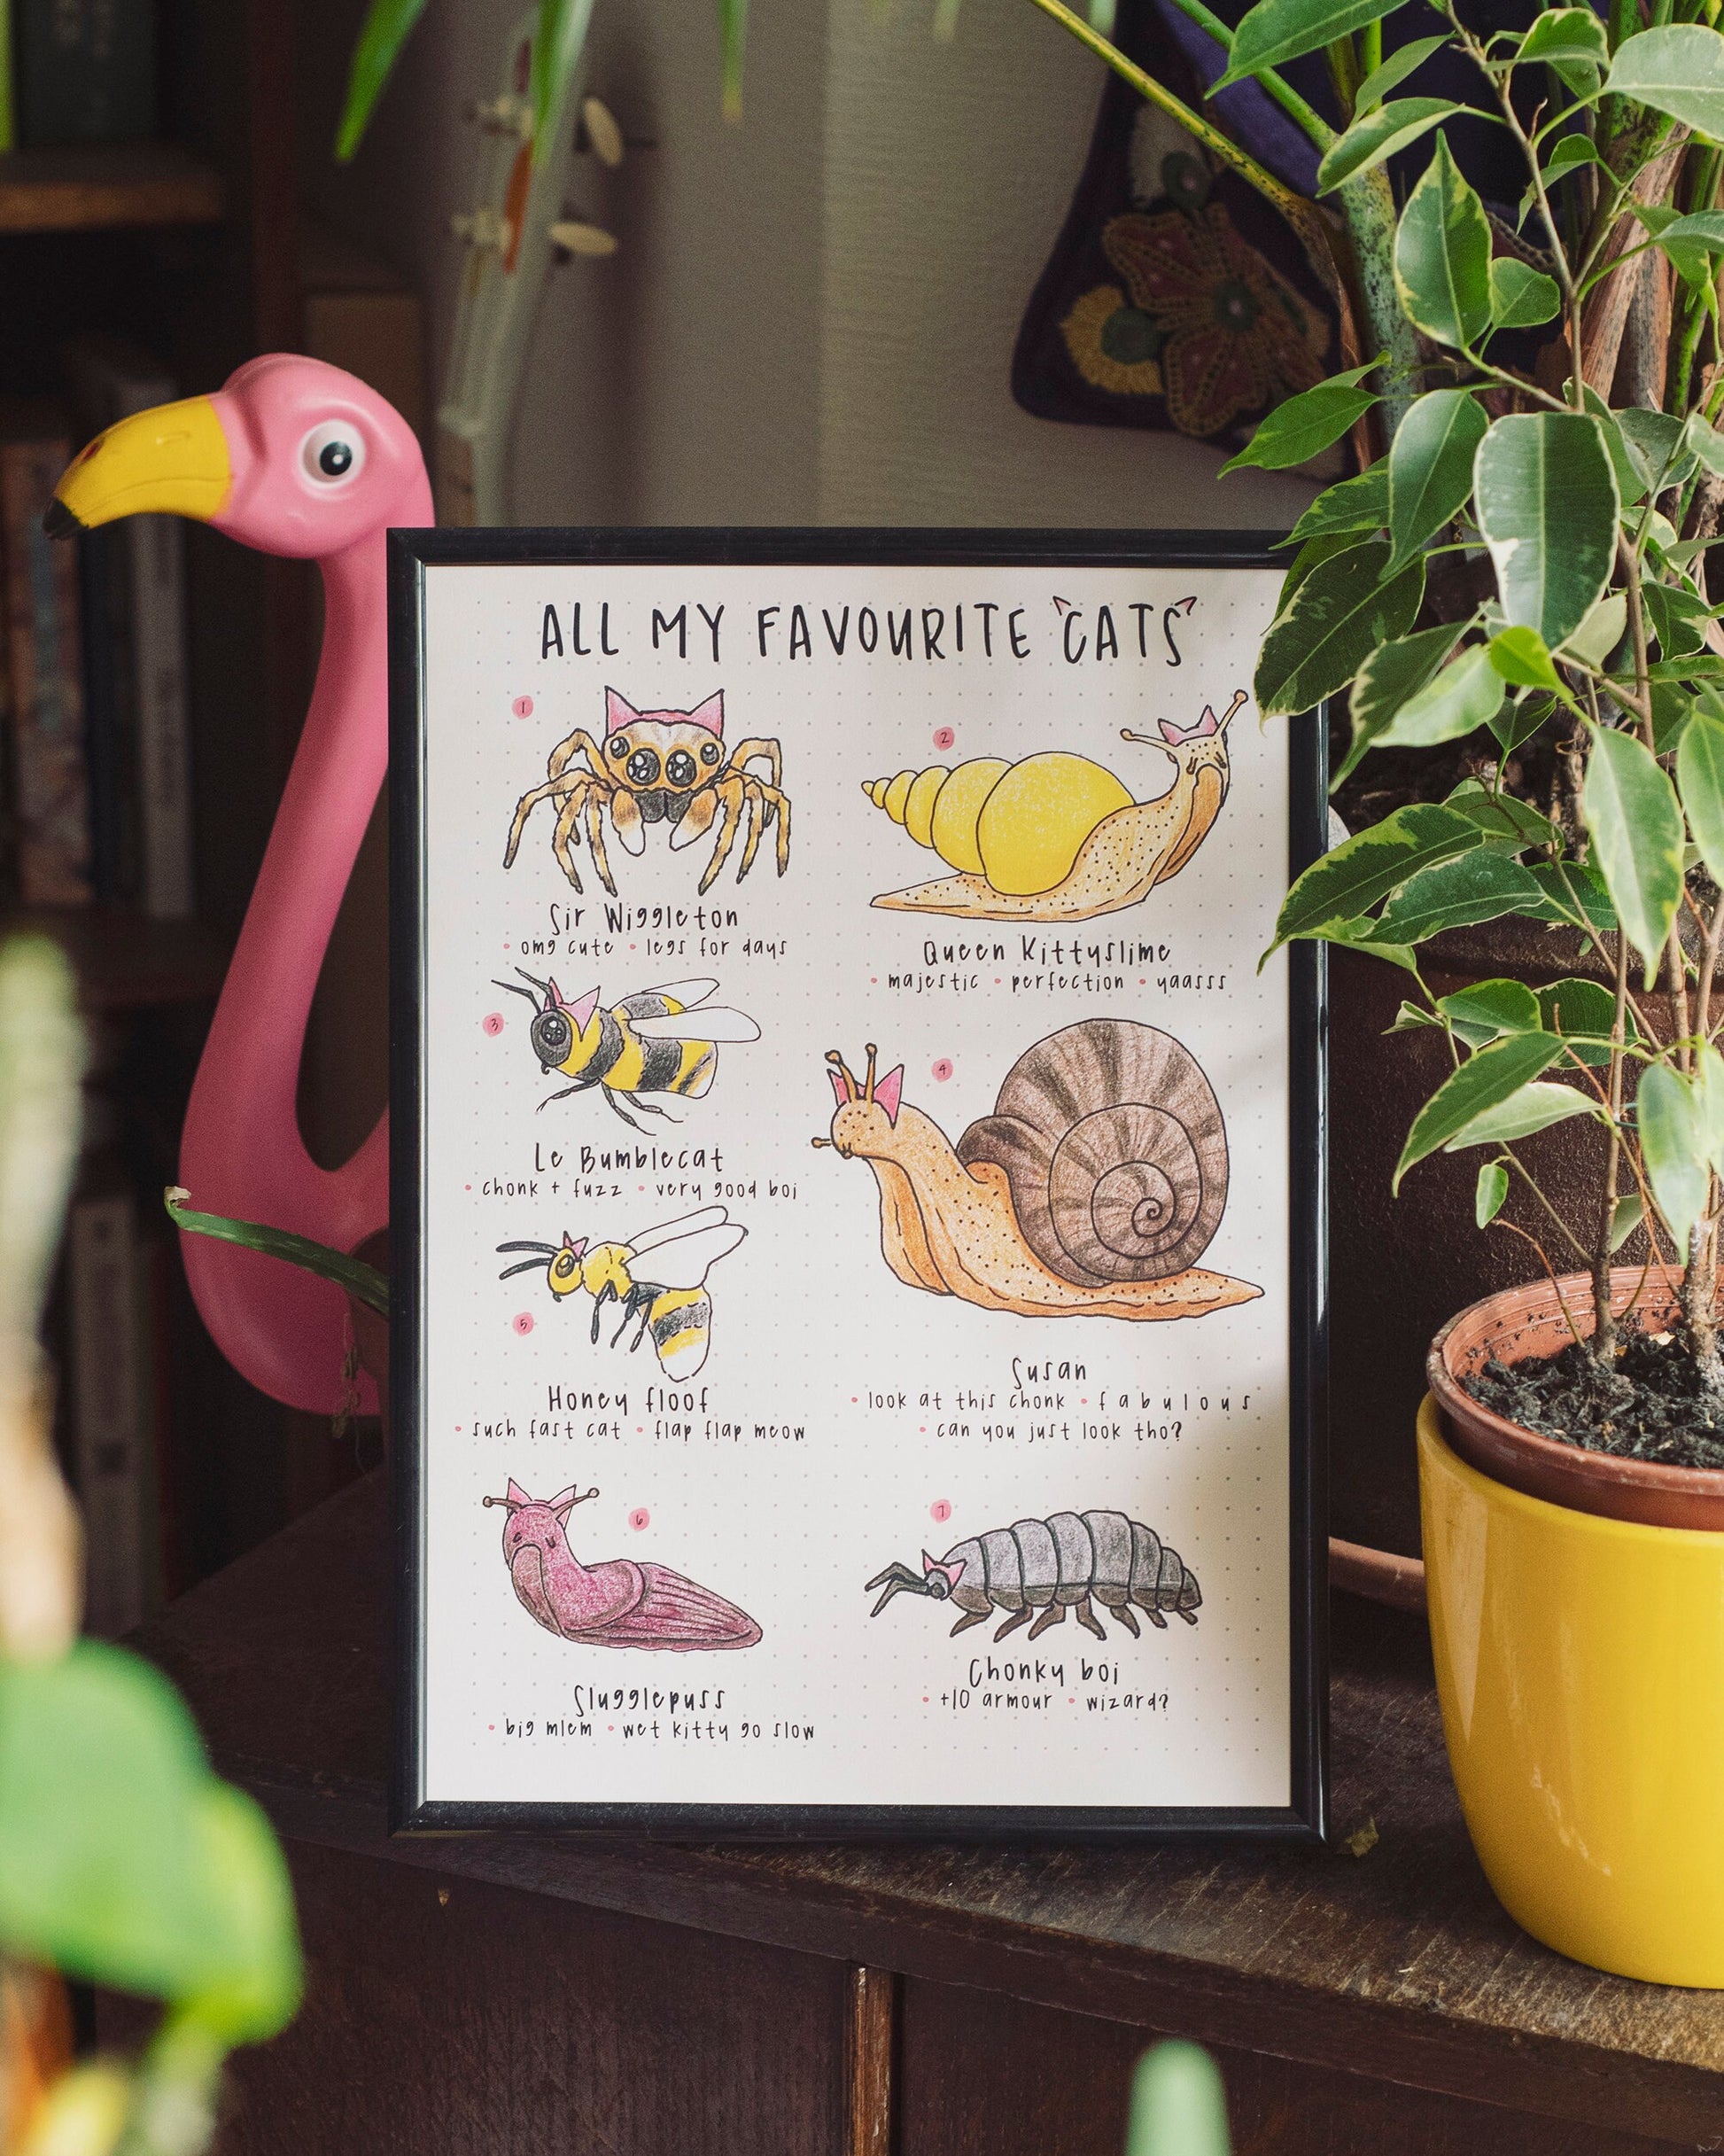 ALL MY FAVOURITE 'CATS'
1
Sir Wiggleton
• omg cute • legs for days
2
Queen Kittyslime
• majestic • perfection • yaasss
3
Le Bumblecat
• chonk + fuzz • very good boi
4
Susan
• look at this chonk • f a b u l o u s
• can you just look tho?
5
Honey floof
• such fast cat • flap flap meow
6
Slugglepuss
• big mlem • wet kitty go slow
7
Chonky boi
• +10 armour • wizard?